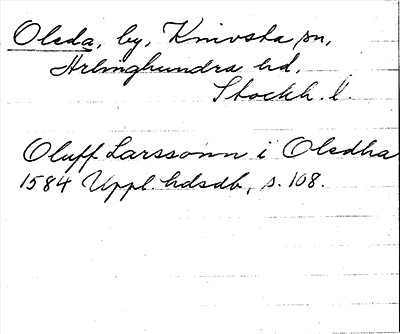 Oleda, by, Knivsta sn,
Ärlinghundra hd,
Stockh. l.
Oluff Larssonn i Oledha
1584 Uppl. hdsdb, s. 108.